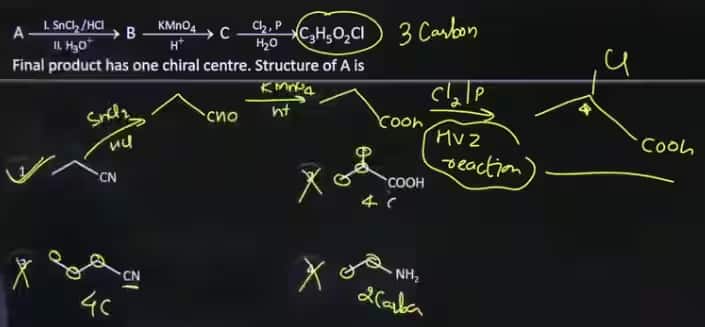 A I. SnCl₂/HCl II. H₃O⁺ → B KMnO₄ H⁺ → C Cl₂, P H₂O → C₃H₅O₂Cl 3 Carbon
Final product has one chiral centre. Structure of A is
SnCl₂ HCl CHO KMnO₄ H⁺ COOH Cl₂/P Cl * COOH
HVZ reaction
1 CN
COOH
4 C
3 CN
4C
4 NH₂
2 Carbon